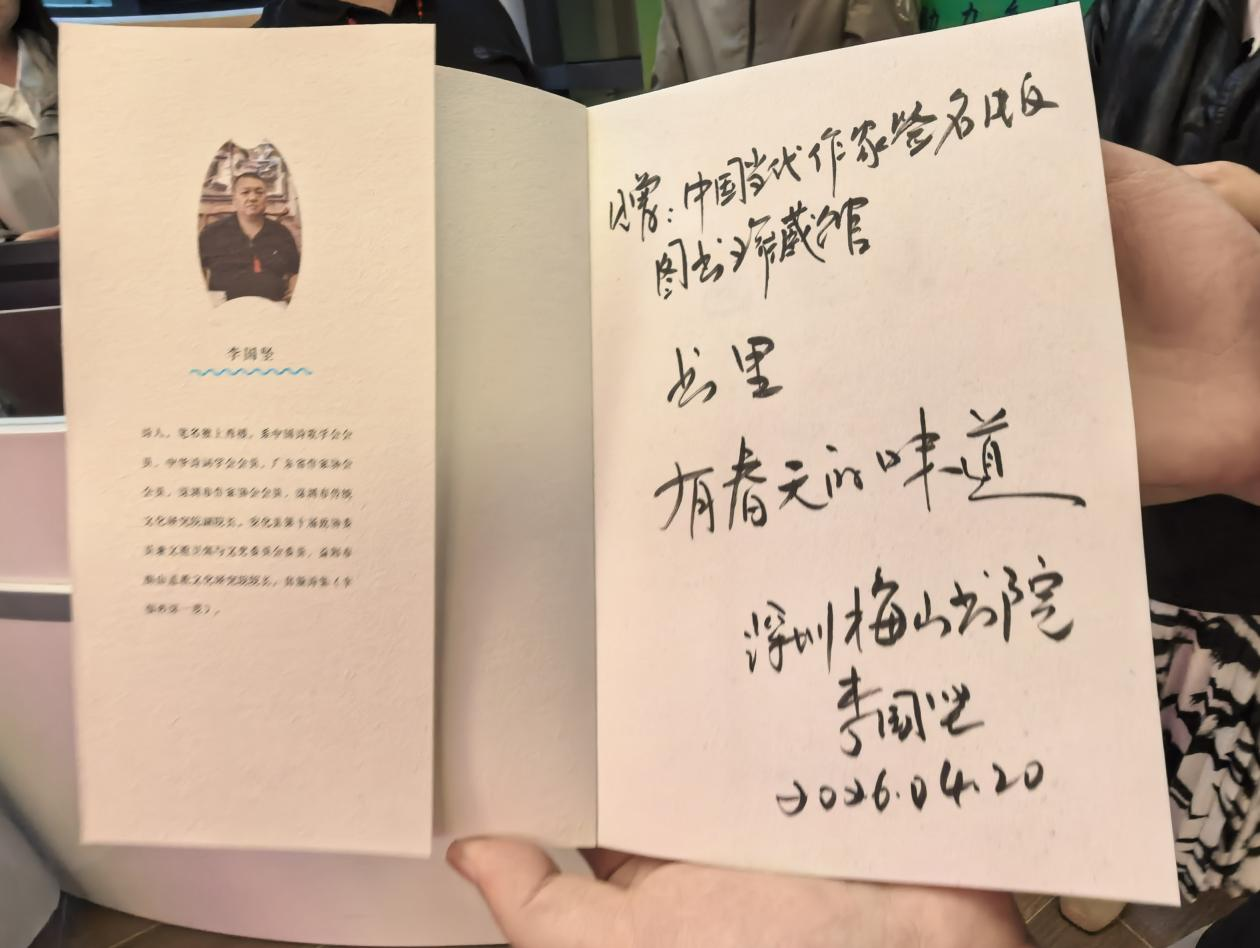 李国坚
诗人，笔名楼上秀楼，系中国诗歌学会会
员，中华诗词学会会员，广东省作家协会
会员，深圳市作家协会会员，深圳市传统
文化研究院副院长，安化县第十届政协委
员兼文教卫体与文史委员会委员，益阳市
梅山文化研究院院长，出版诗集《
惜：中国当代作家签名版
图书珍藏馆
书里
有春天的味道
深圳梅山书院
李国坚
2026.04.20